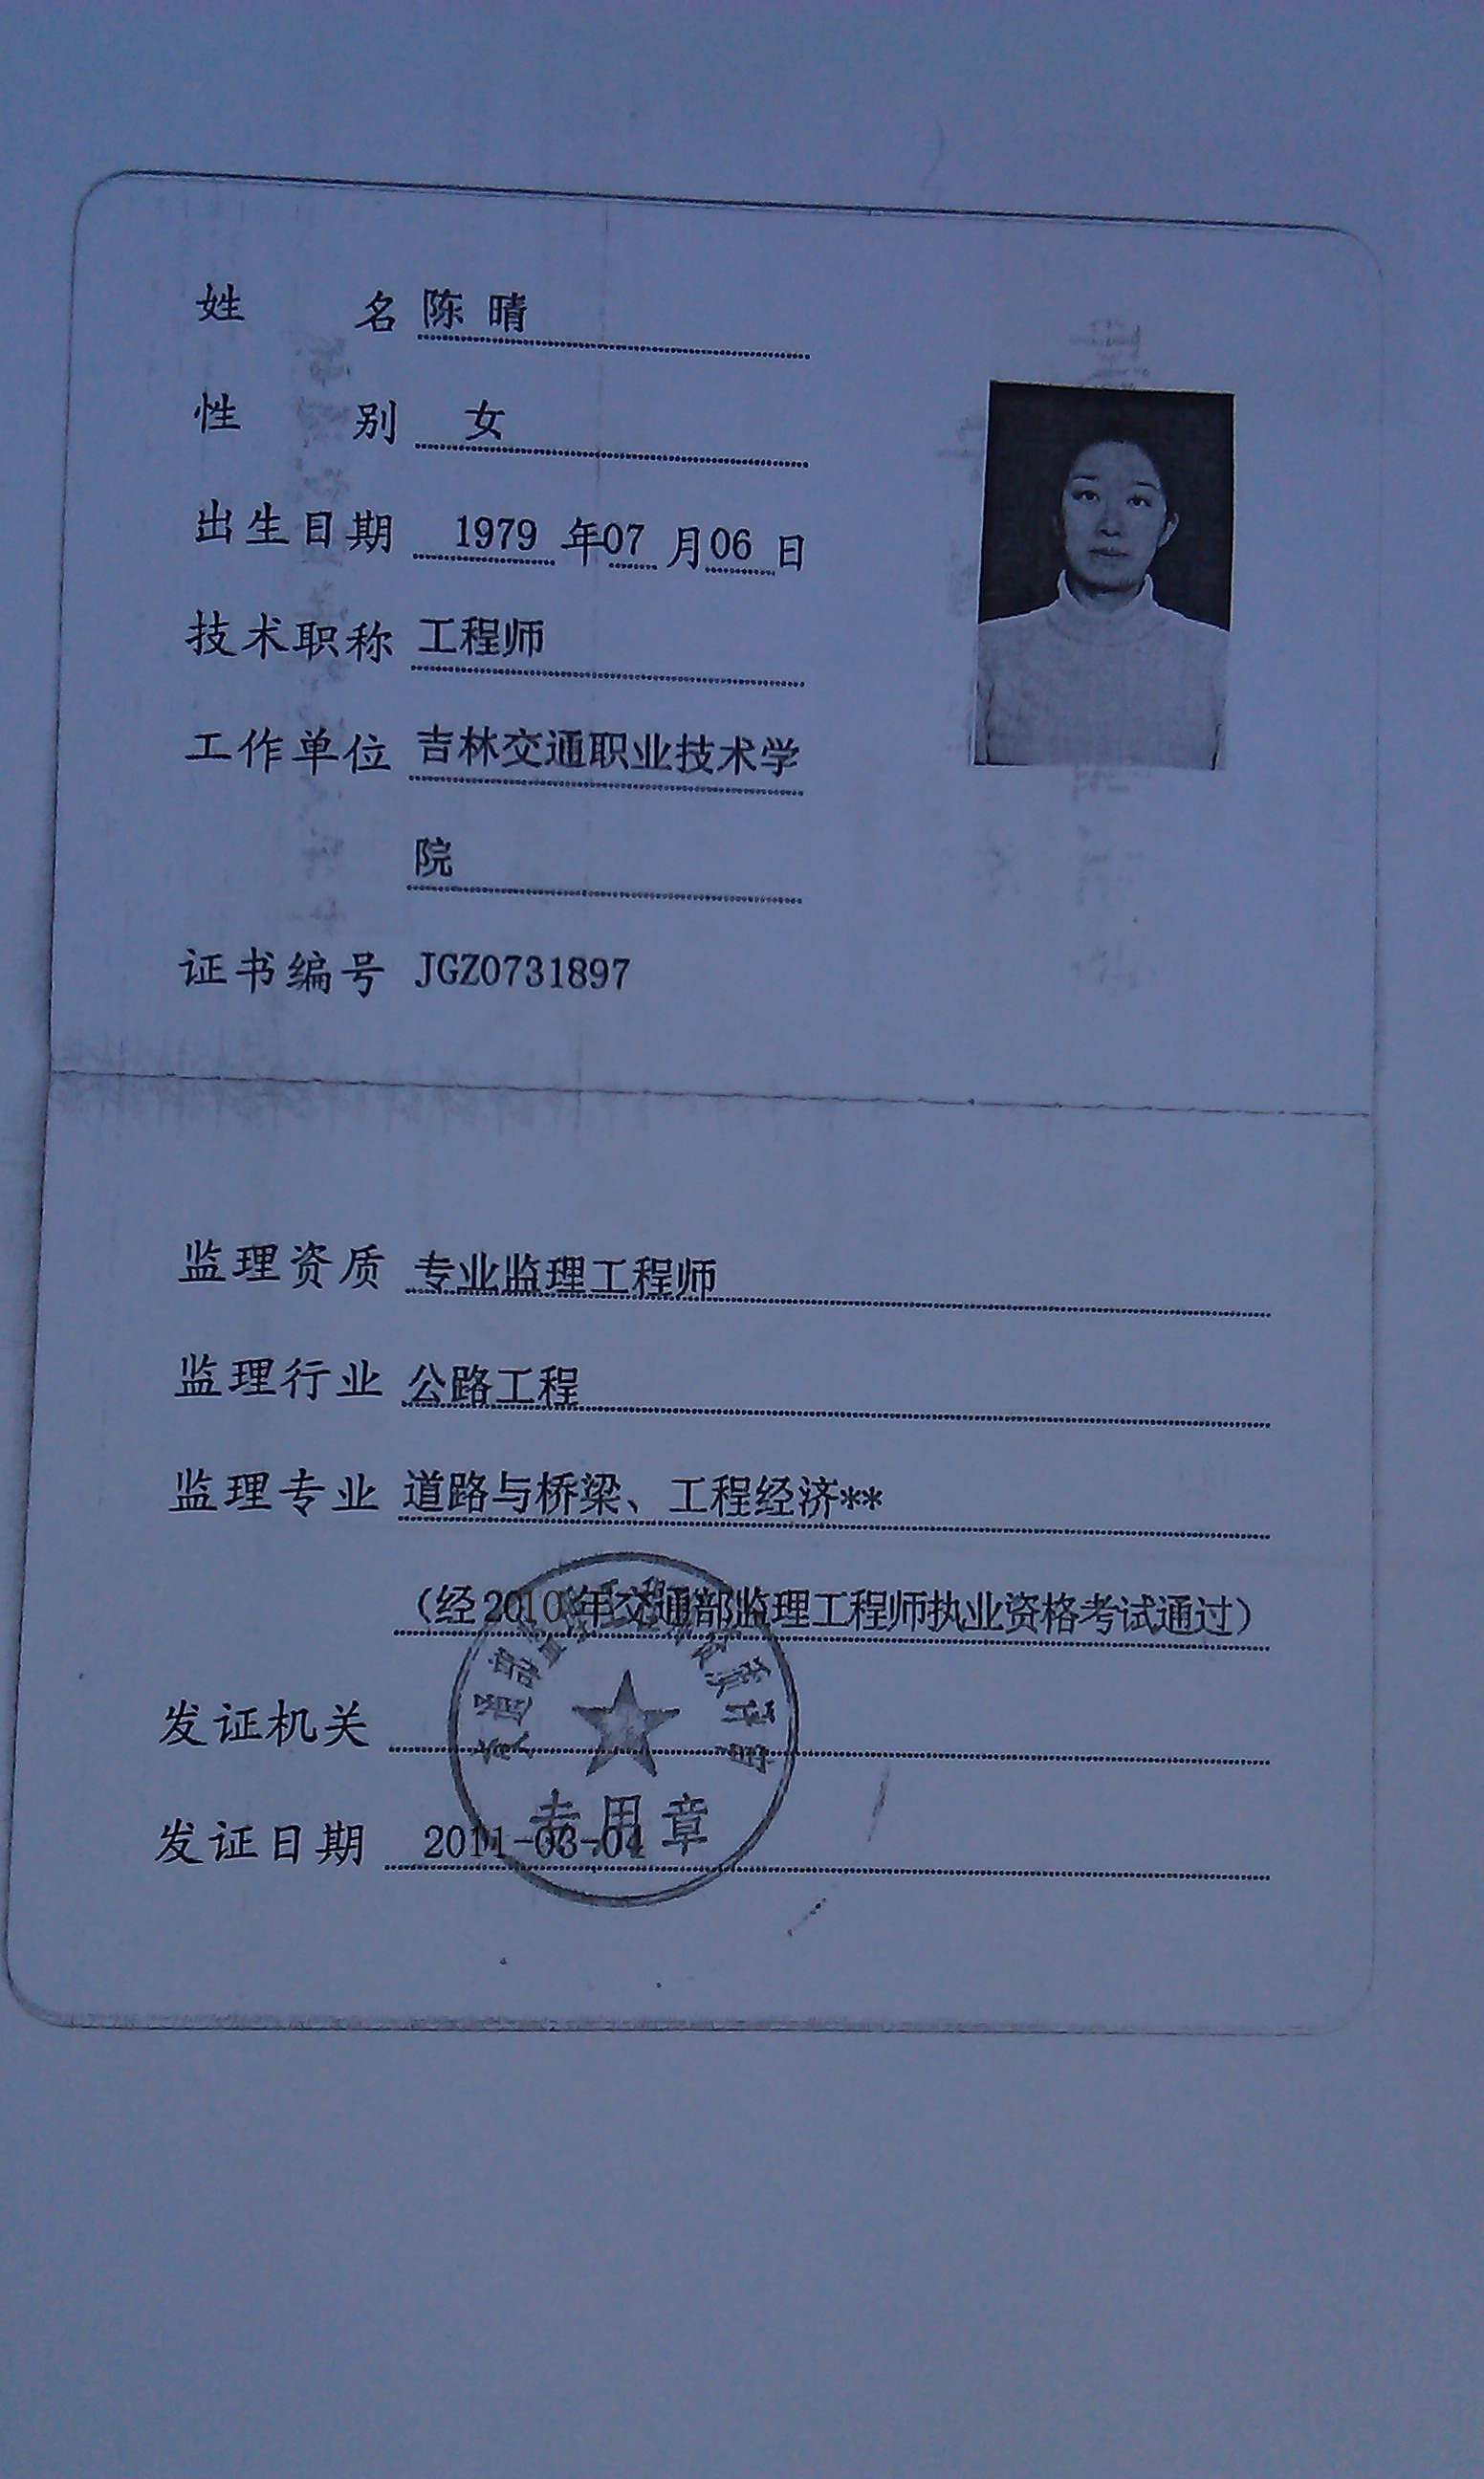 姓 名 陈 晴
性 别 女
出生日期 1979 年07 月06 日
技术职称 工程师
工作单位 吉林交通职业技术学
院
证书编号 JGZ0731897
监理资质 专业监理工程师
监理行业 公路工程
监理专业 道路与桥梁、工程经济**
（经2010年交通部监理工程师执业资格考试通过）
发证机关
专用章
发证日期 2011-03-04